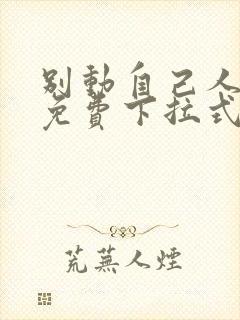 别動自己人
免費下拉式
荒蕪人煙